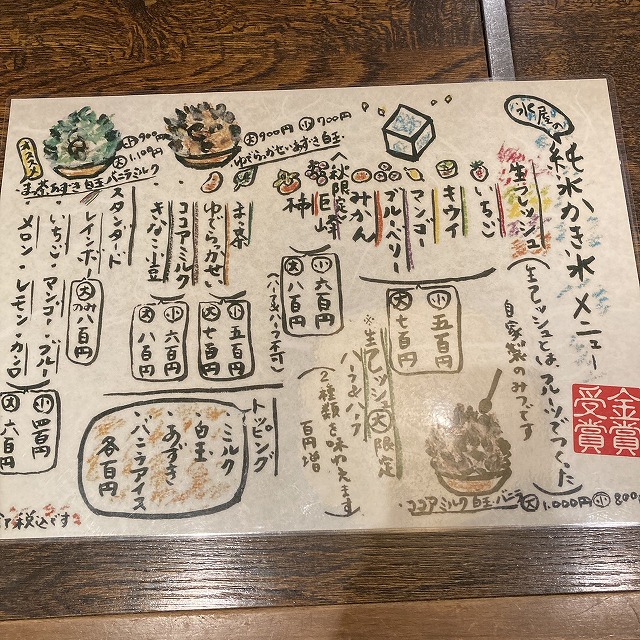 氷屋の
純氷かき氷メニュー
生フレッシュ
(生フレッシュとはフルーツでつくった
自家製のみつです
金賞
受賞
いちご
キウイ
マンゴー
ブルーベリー
みかん
小 五百円
大 七百円
〈秋限定〉
巨峰
柿
小 六百円
大 八百円
(ハーフ&ハーフ不可)
※生フレッシュ大限定
ハーフ&ハーフ
(2種類を味わえます
百円増
ココアミルク白玉バニラ
大1.000円 小800
大900円 小700円
ゆでらっかせいあずき白玉
オススメ
小900円
大1.100円
抹茶あずき白玉バニラミルク
抹茶
ゆでらっかせい
小 五百円
大 七百円
ココアミルク
きなこ小豆
小 六百円
大 八百円
スタンダード
レインボー
大のみ 八百円
いちご・マンゴー・ブルー
メロン・レモン・カシロ
小 四百円
大 六百円
トッピング
・ミルク
・白玉
・あずき
・バニラアイス
各百円
税込です